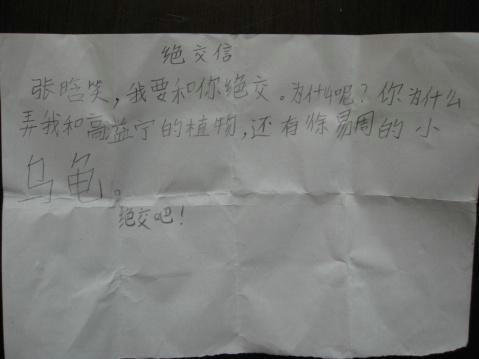 绝交信
张晗笑,我要和你绝交。为什么呢?你为什么
弄我和高益宁的植物,还有徐易周的小
乌龟。
绝交吧!